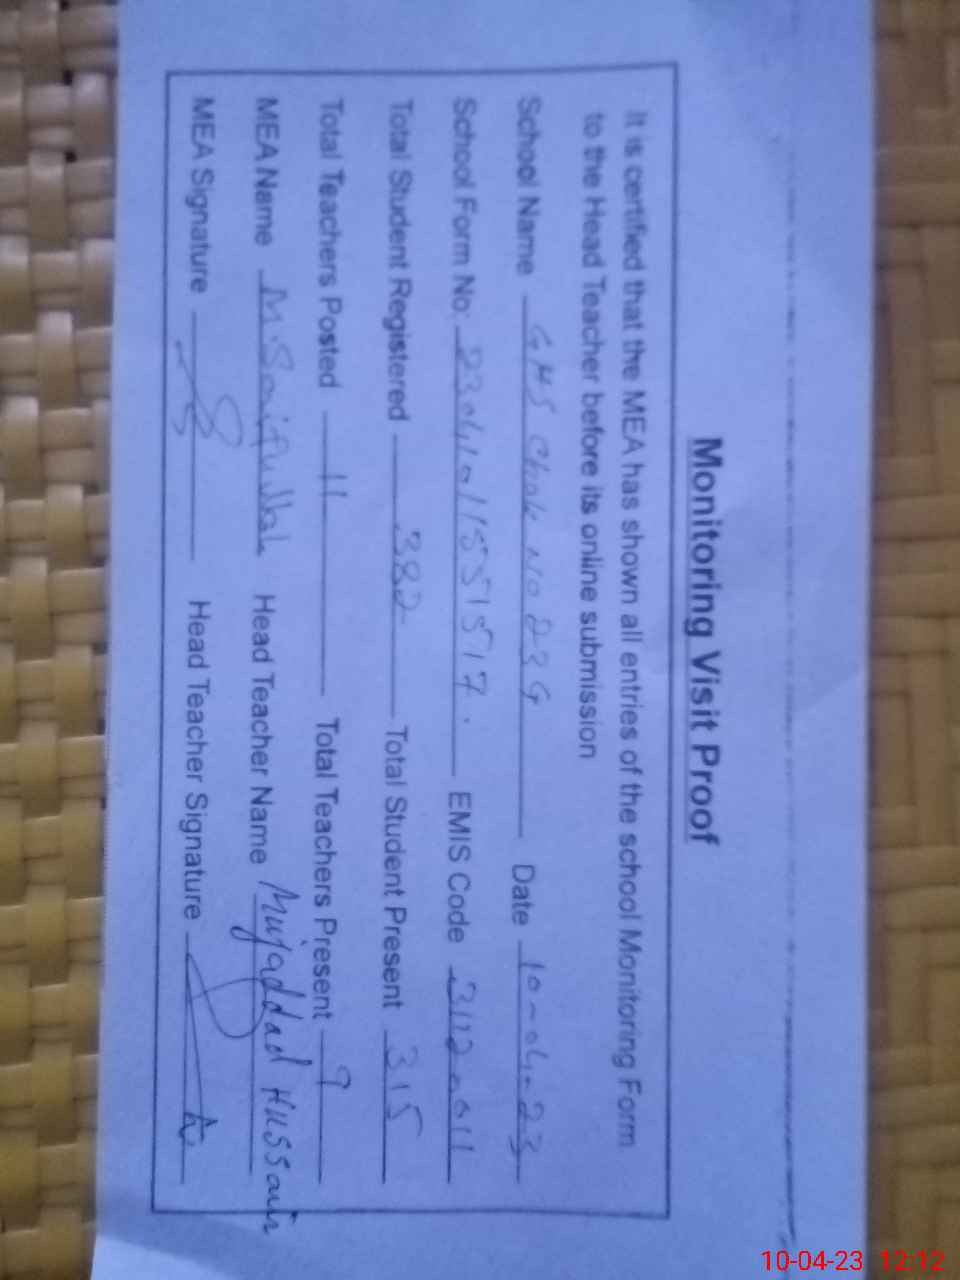 Monitoring Visit Proof
It is certified that the MEA has shown all entries of the school Monitoring Form
to the Head Teacher before its online submission
School Name GHS Chak No 239 Date 10-04-23
School Form No: EMIS Code
Total Student Registered 382 Total Student Present 315
Total Teachers Posted 11 Total Teachers Present 9
MEA Name M. Saifullah Head Teacher Name Mujaddad Hussain
MEA Signature Head Teacher Signature
10-04-23 12:12